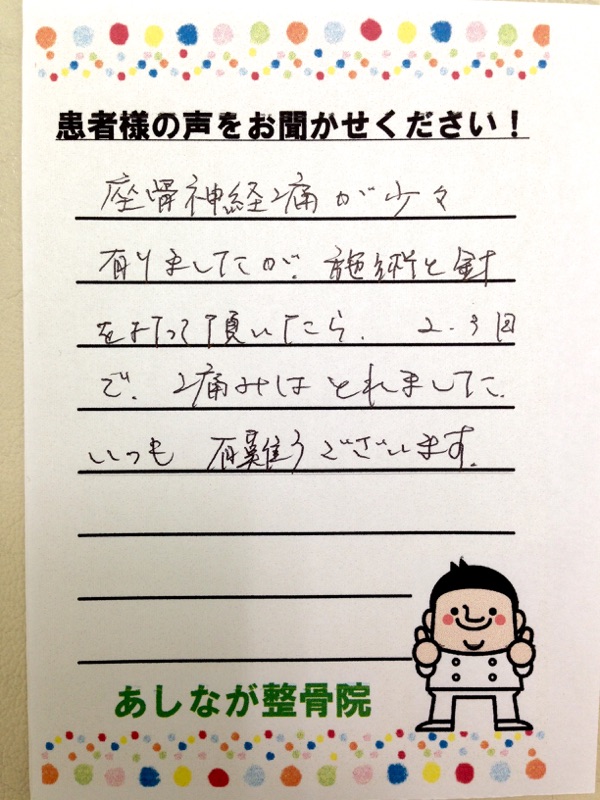 患者様の声をお聞かせください！
座骨神経痛が少々
有りましたが、施術と針
を打って頂いたら、2.3回
で、痛みはとれました。
いつも有難うございます。
あしなが整骨院